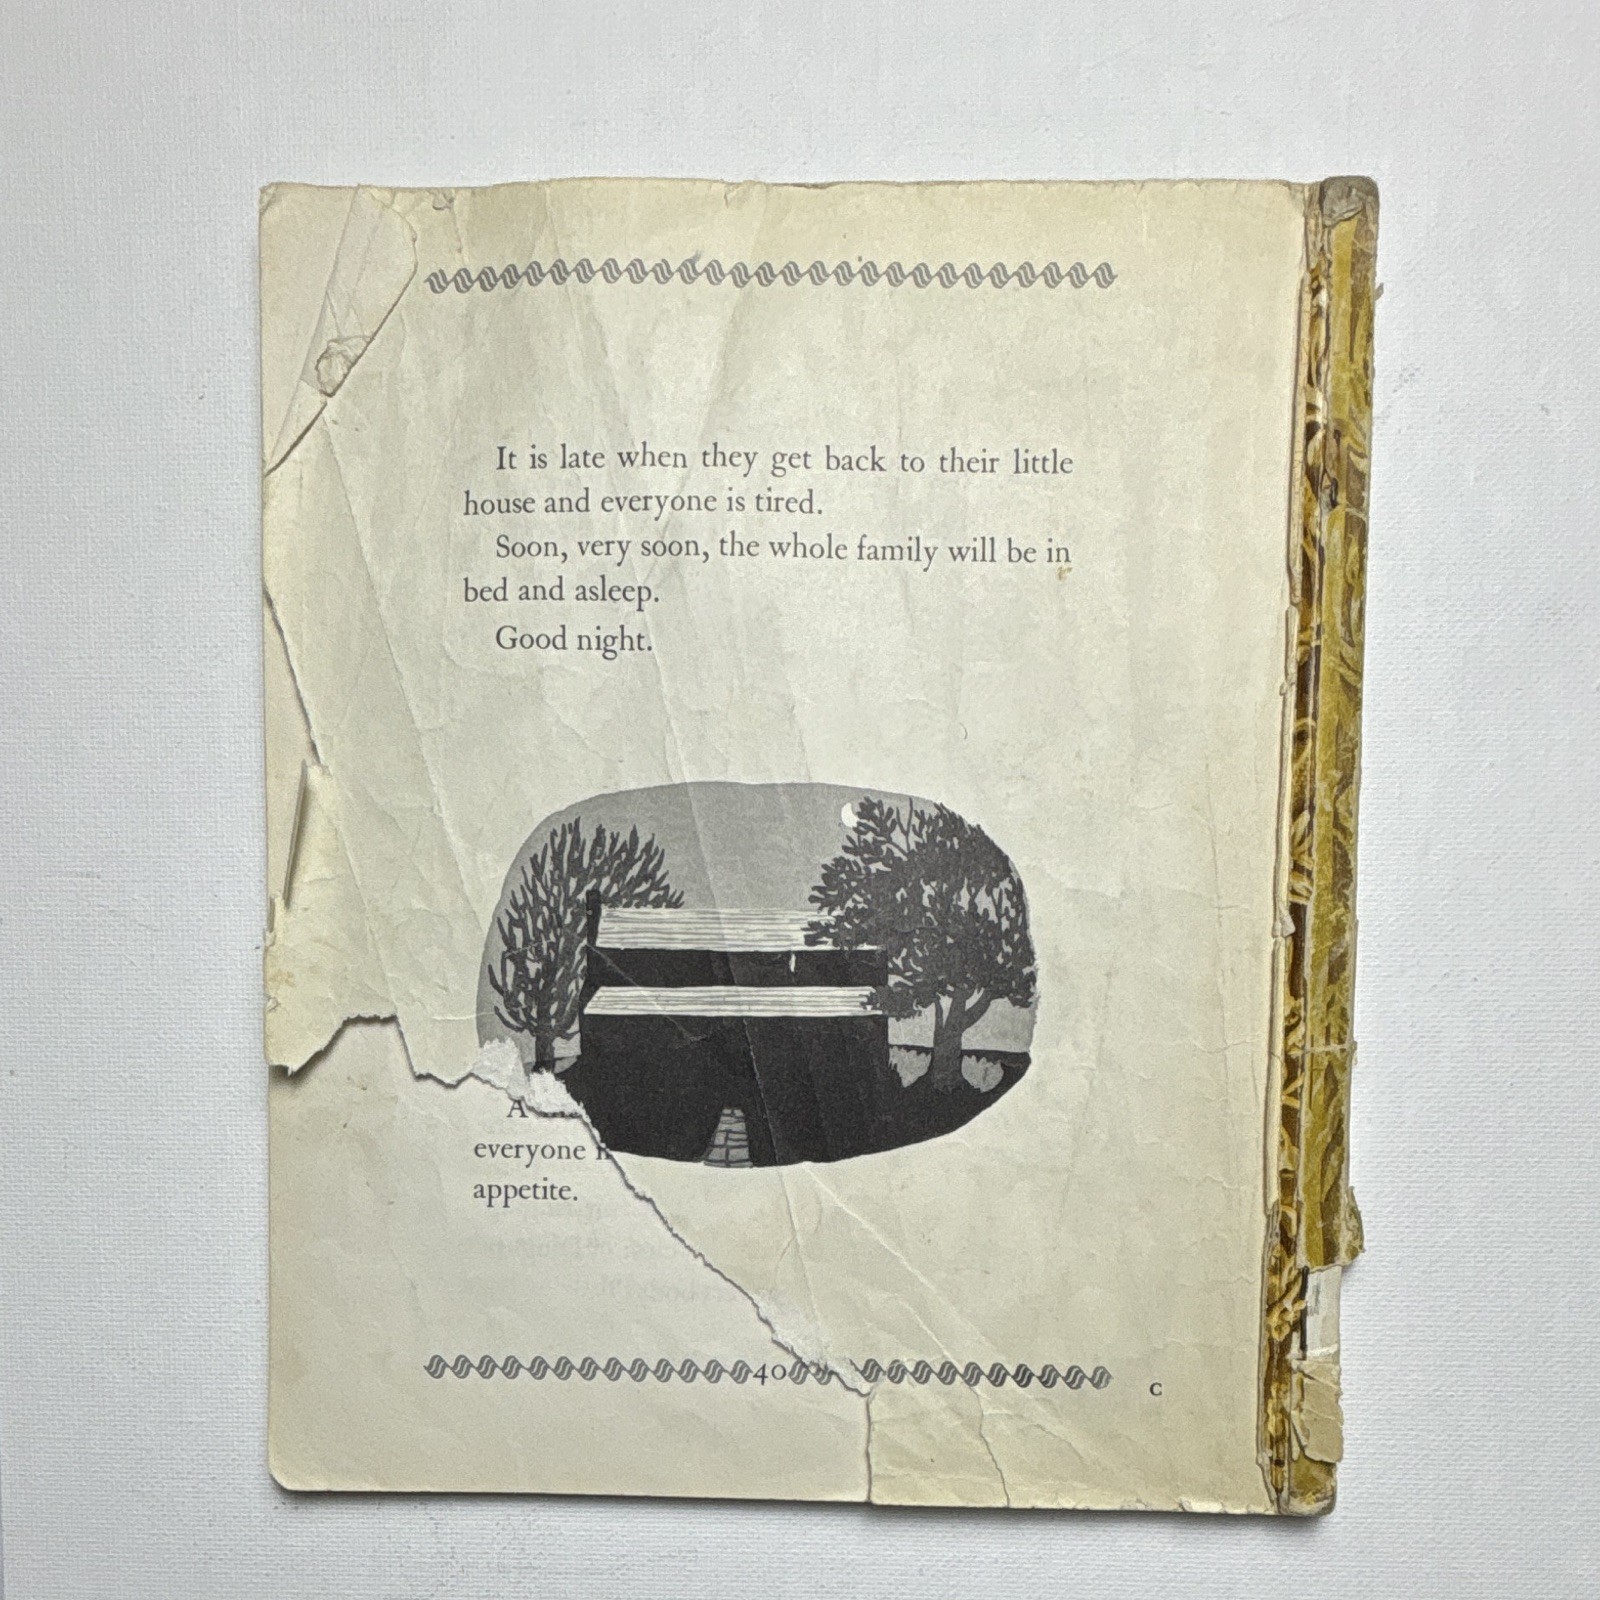 It is late when they get back to their little
house and everyone is tired.
Soon, very soon, the whole family will be in
bed and asleep.
Good night.
A
everyone
appetite.
40
C